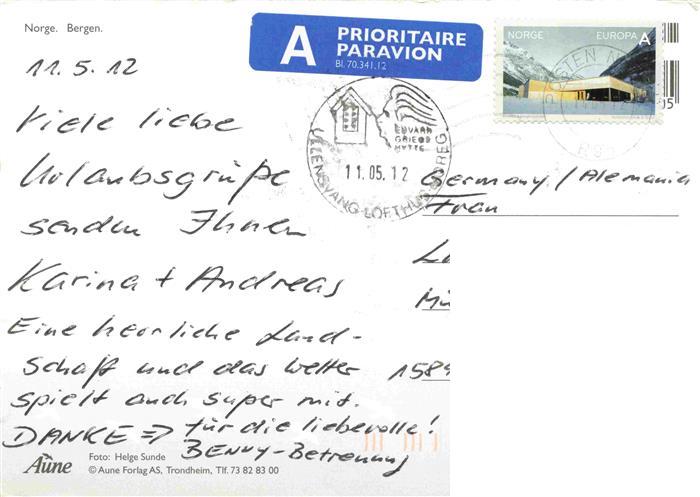 Norge. Bergen.
11.5.12
Viele liebe
Urlaubsgrüße
senden Ihnen
Karina + Andreas
Eine herrliche Land-
schaft und das Wetter
spielt auch super mit.
DANKE => für die liebevolle!
BENNY-Betreuung
Foto: Helge Sunde
Aune
© Aune Forlag AS, Trondheim, Tlf. 73 82 83 00
A PRIORITAIRE
PARAVION
Bl. 70.341.12
NORGE EUROPA A
EDVARD
GRIEGS
HYTTE
11.05.12
ULLENSVANG LOFTHUS
POSTEN
15
Germany / Alemania
Frau
Mü
1589